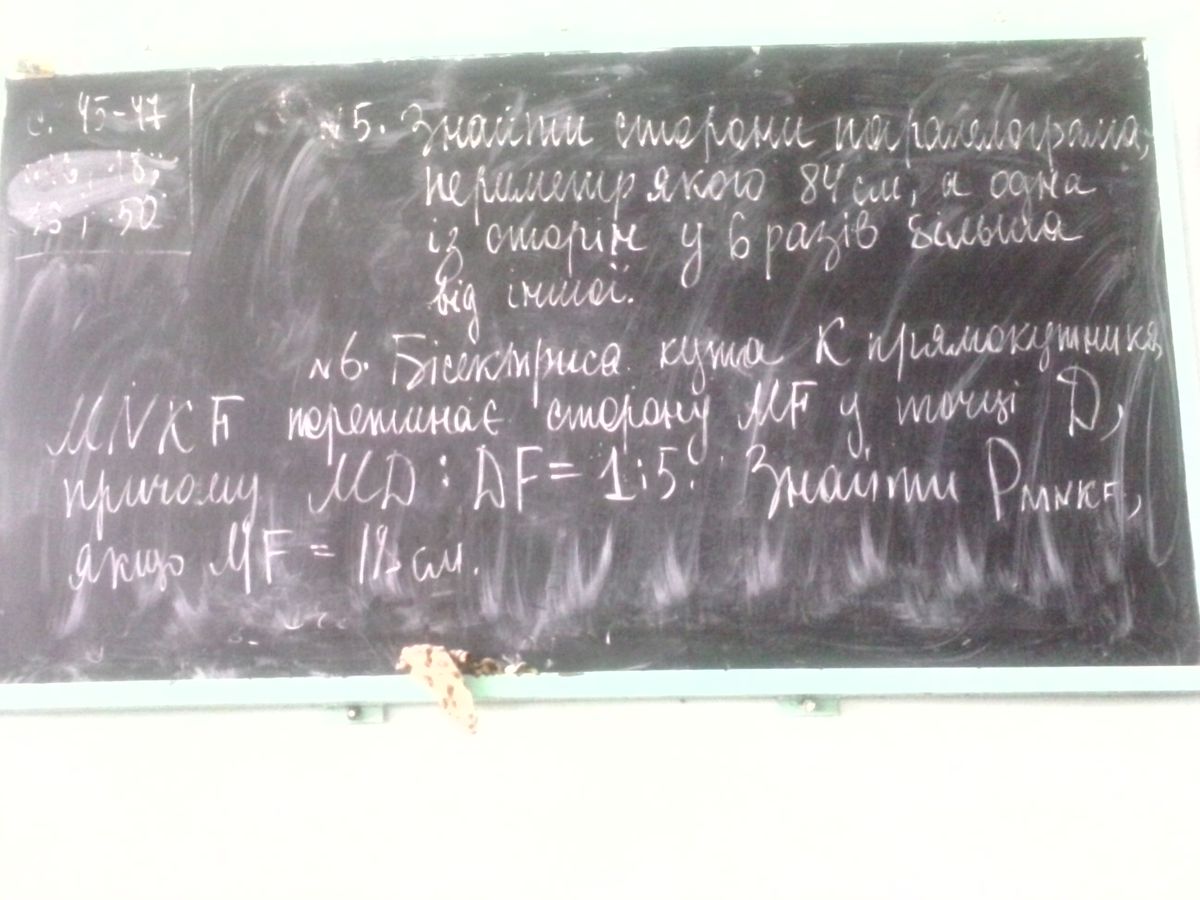 с. 45-47
№5. Знайти сторони паралелограма,
периметр якого 84 см, а одна
із сторін у 6 разів більша
від іншої.
№6. Бісектриса кута К прямокутника
MNKF перетинає сторону MF у точці D,
причому MD : DF = 1:5. Знайти P MNKF,
якщо MF = 18 см.